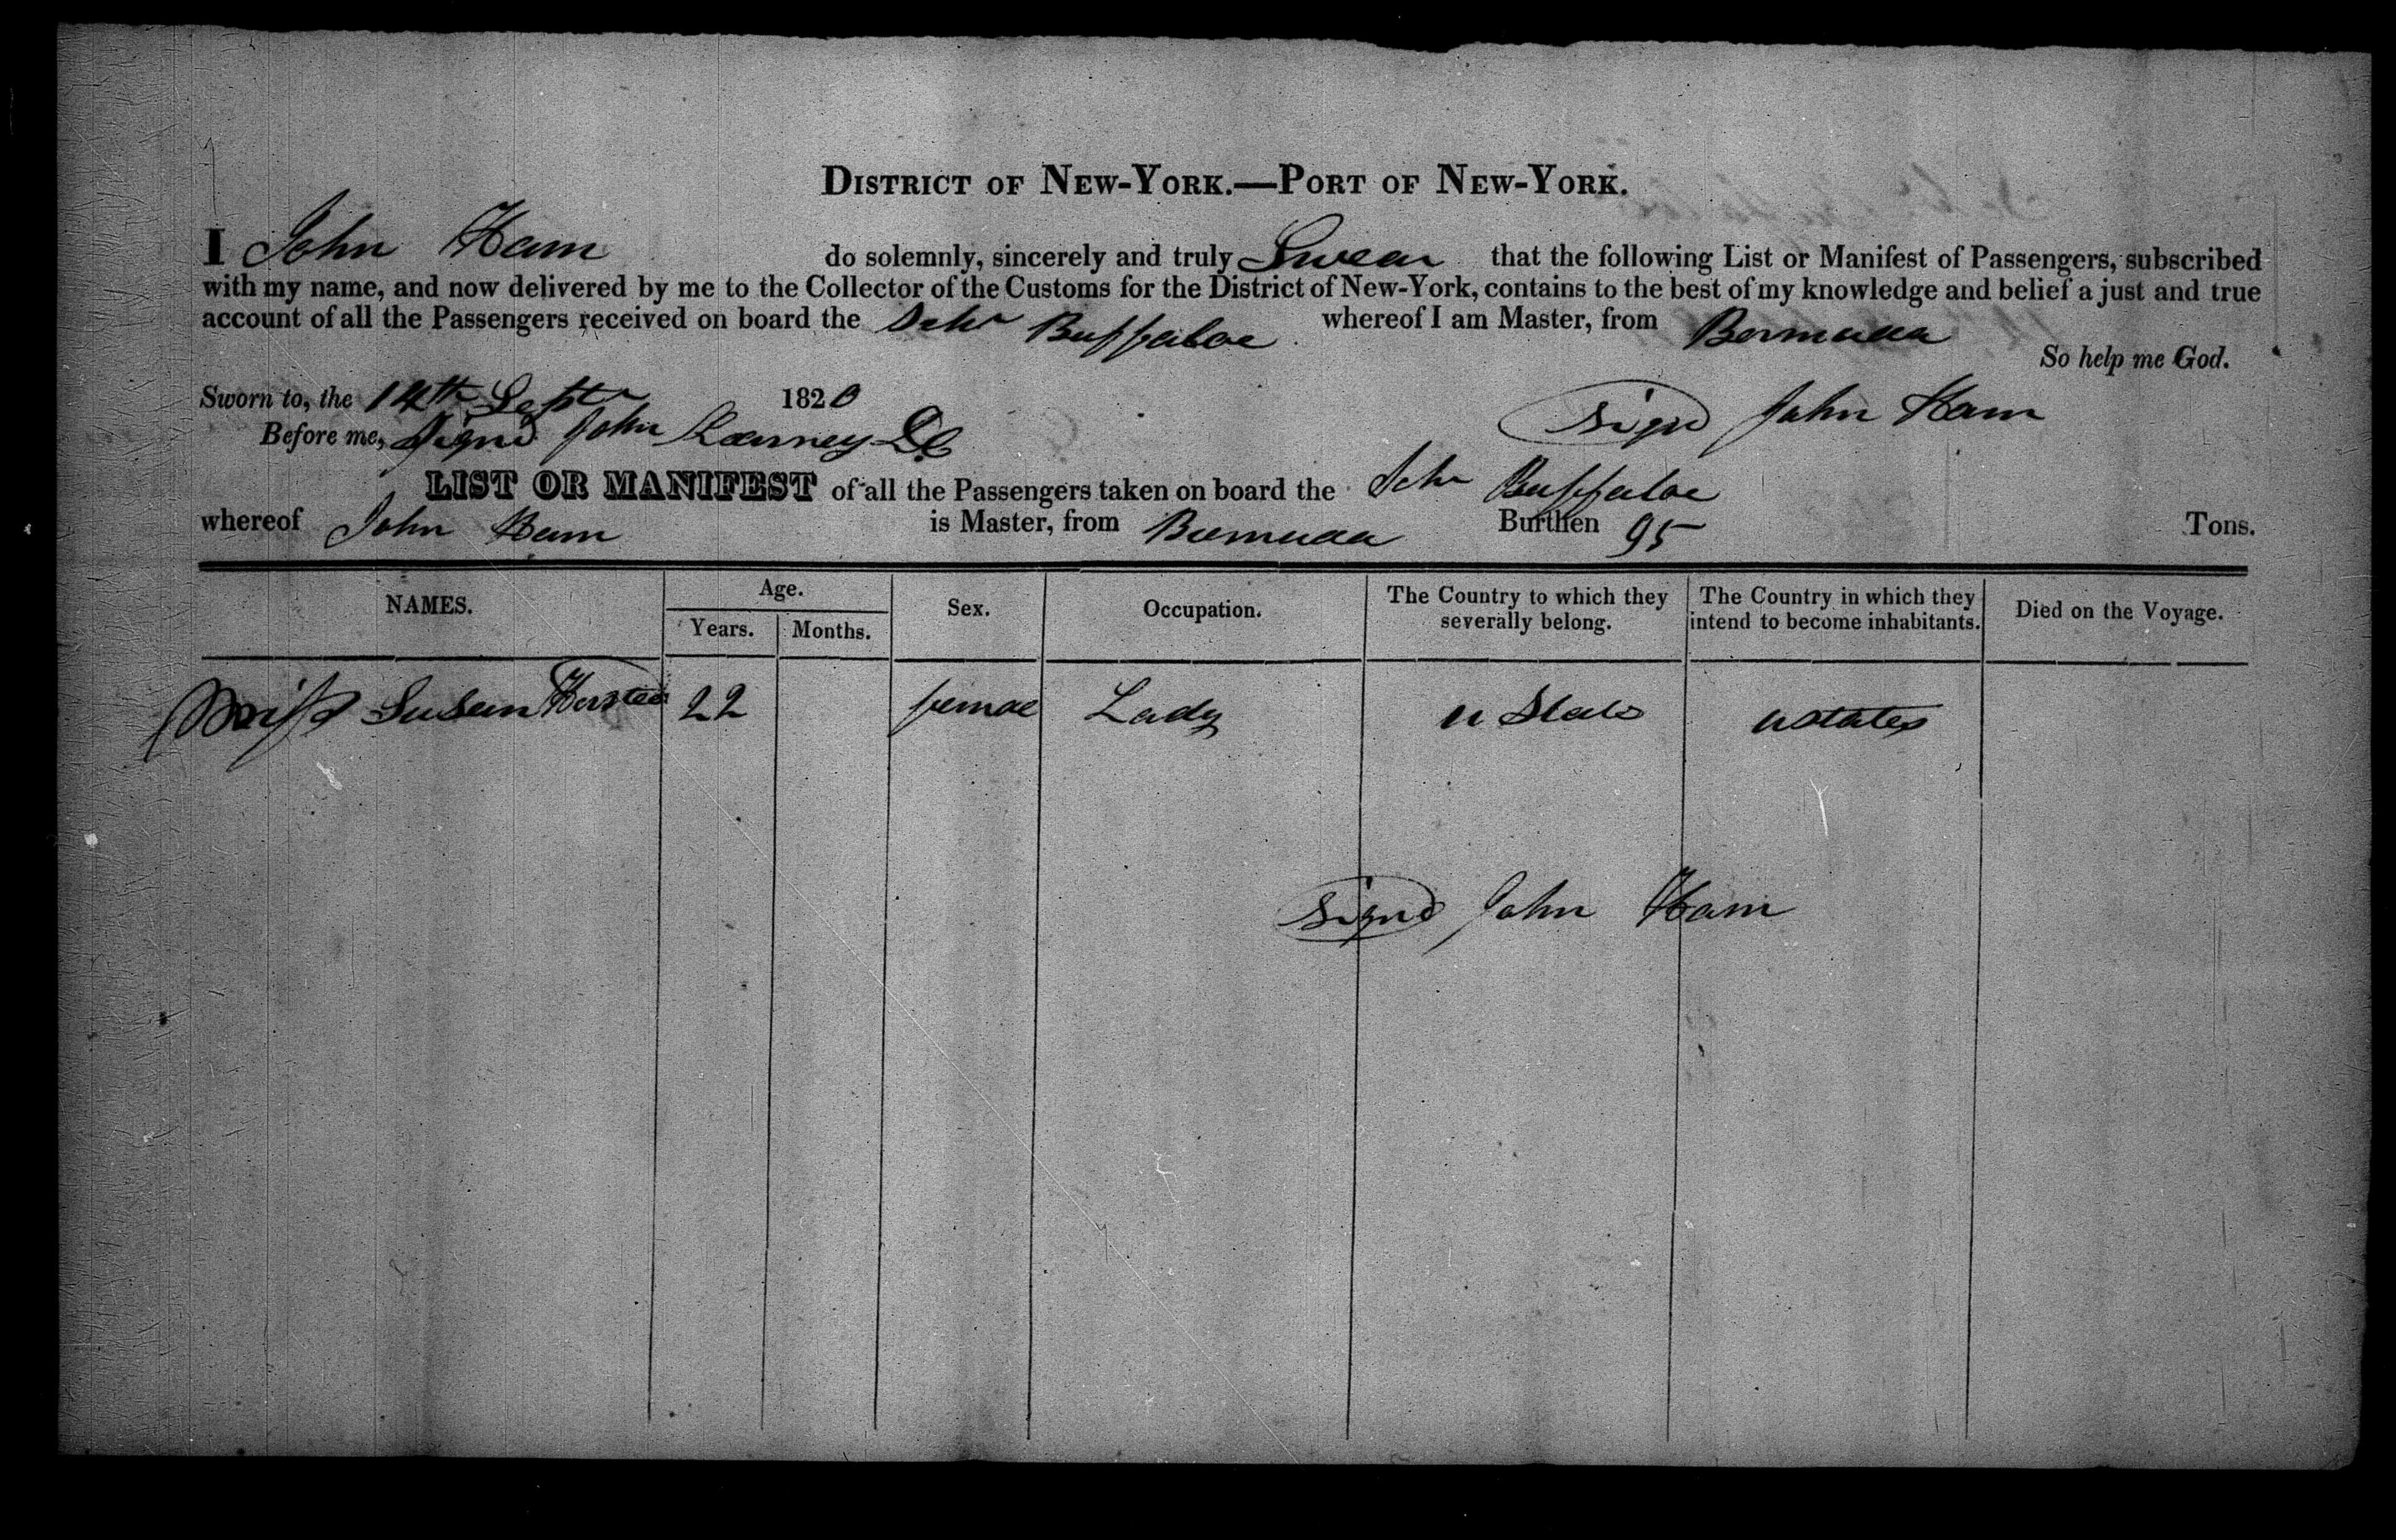 DISTRICT OF NEW-YORK.—PORT OF NEW-YORK.
I John Ham do solemnly, sincerely and truly Swear that the following List or Manifest of Passengers, subscribed
with my name, and now delivered by me to the Collector of the Customs for the District of New-York, contains to the best of my knowledge and belief a just and true
account of all the Passengers received on board the Schr Buffaloe whereof I am Master, from Bermuda
So help me God.
Sworn to, the 14th Septr 1820
Signd John Ham
Before me, Signd John Kearney DC
LIST OR MANIFEST of all the Passengers taken on board the Schr Buffaloe
whereof John Ham is Master, from Bermuda Burthen 95 Tons.
NAMES. Age. Years. Months. Sex. Occupation. The Country to which they severally belong. The Country in which they intend to become inhabitants. Died on the Voyage.
Miss Susan 22 femae Lady u States ustates
Signd John Ham